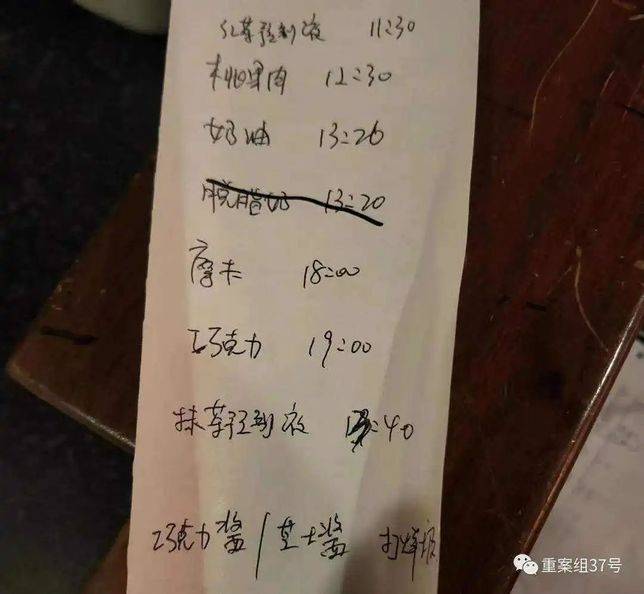 红茶预制液 11:30
桃果肉 12:30
奶油 13:20
脱脂奶 13:20
摩卡 18:00
巧克力 19:00
抹茶预制液 :40
巧克力酱/芝士酱 打烊报
重案组37号